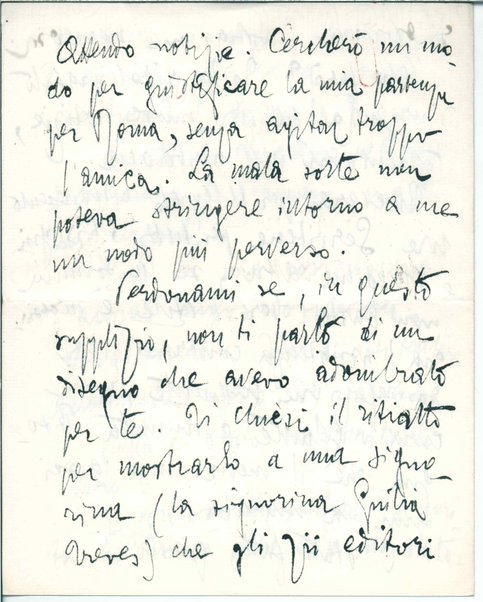 Attendo notizie. Cercherò un mo
do per giustificare la mia partenza
per Roma, senza agitar troppo
l'amica. La mala sorte non
poteva stringere intorno a me
un nodo più perverso.
Perdonami se, in questo
supplizio, non ti parlo di un
disegno che avevo adombrato
per te. Ti chiesi il ritratto
per mostrarlo a una signo
rina (la signorina Giulia
Treves) che gli zii editori